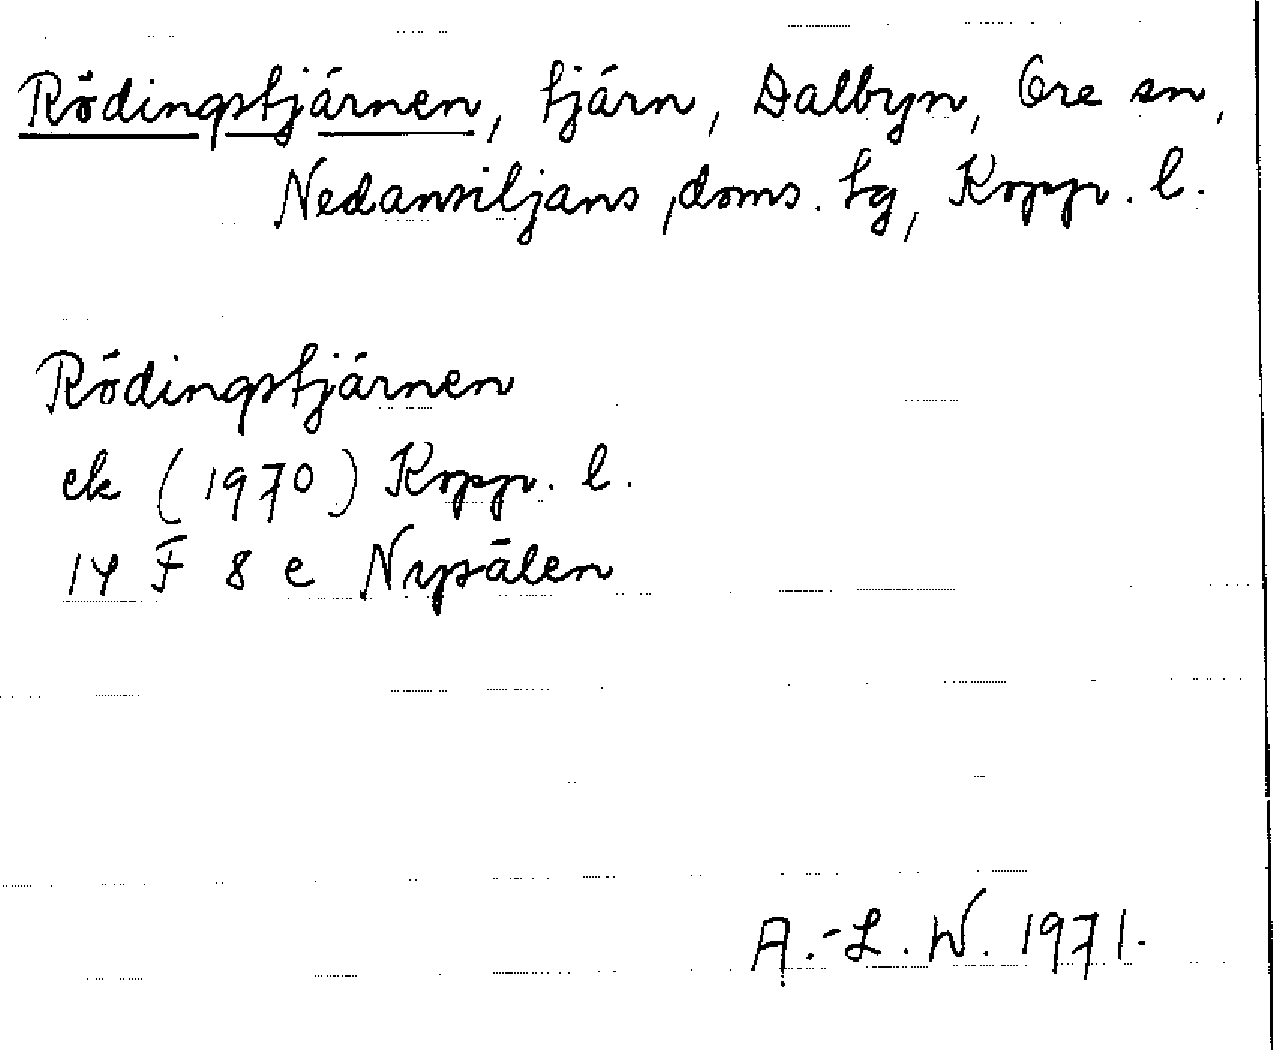 Rödingstjärnen, tjärn, Dalbyn, Ore sn,
Nedansiljans doms. tg, Kopp. l.
Rödingstjärnen
ek (1970) Kopp. l.
14 F 8 e Nysälen
A.-L. W. 1971.